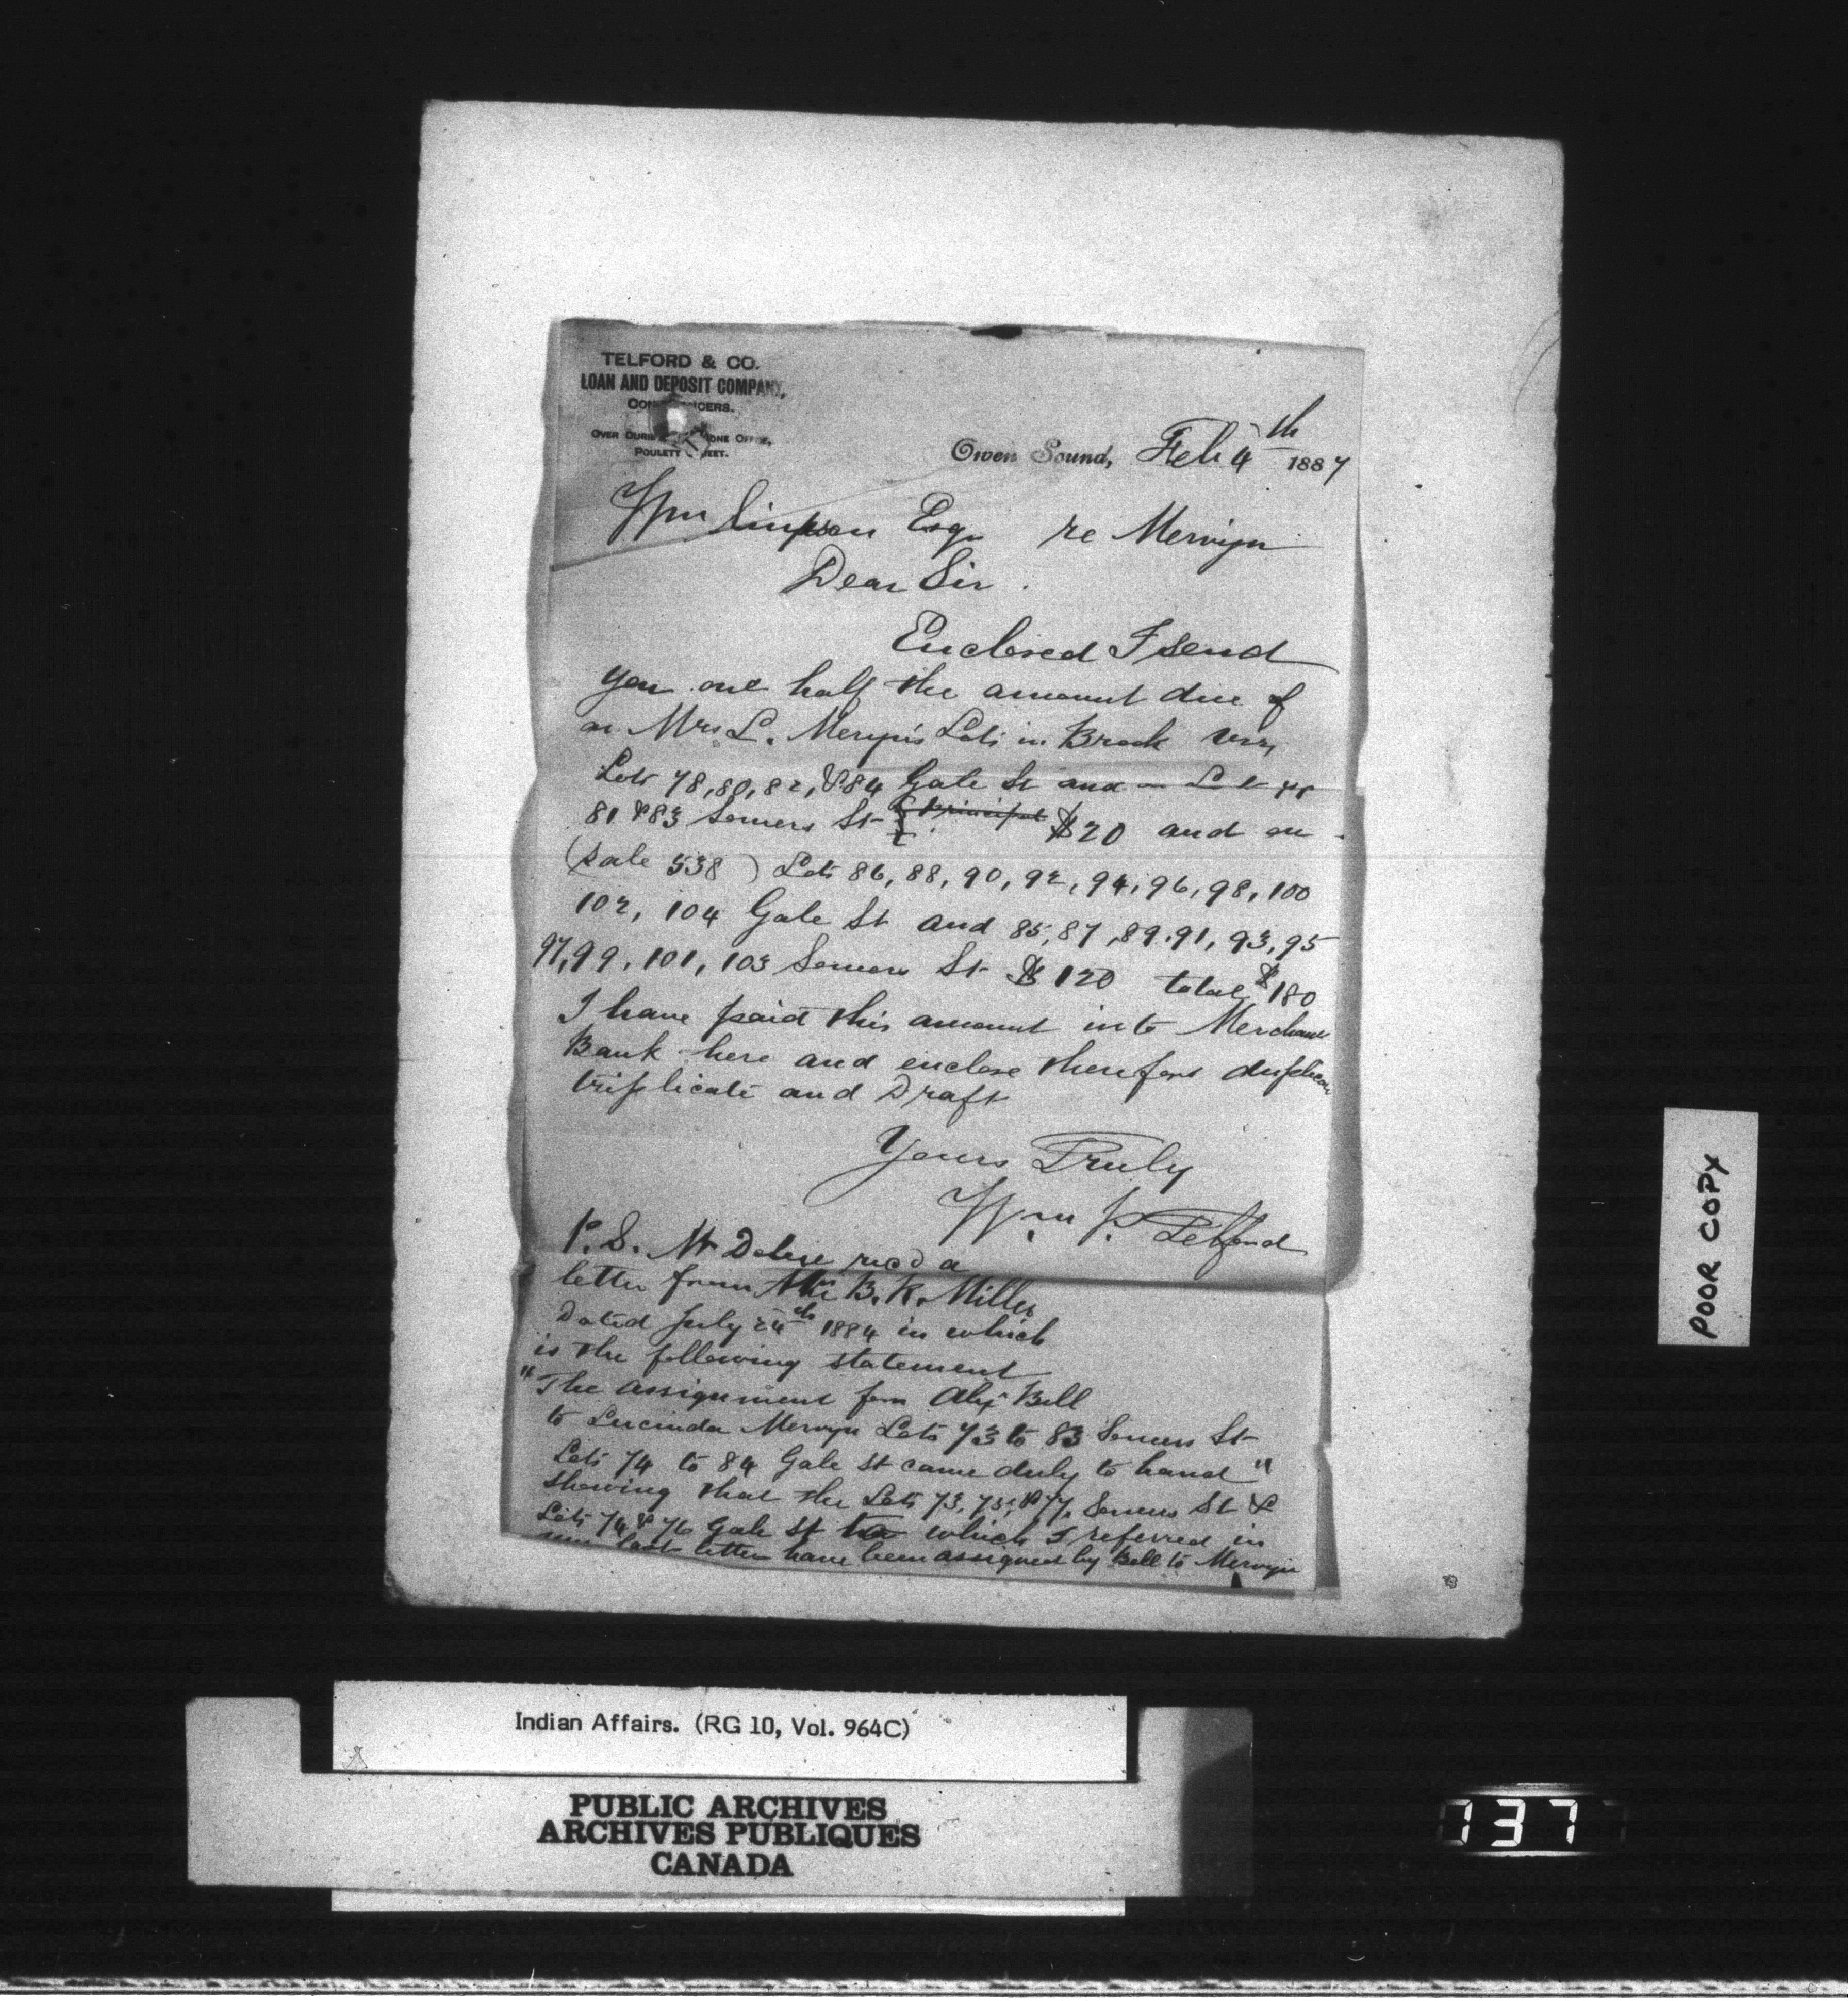 TELFORD & CO.
LOAN AND DEPOSIT COMPANY,
POULETT
Owen Sound, Feb 4th 1887
Wm Simpson Esq re Mervyn
Dear Sir.
Enclosed I send
you one half the amount due
on Mrs L. Mervyn's Lots in Brook viz
Lots 78, 80, 82, & 84 Gale St and
81 & 83 Somers St Principal $20 and on
(Sale 538) Lots 86, 88, 90, 92, 94, 96, 98, 100
102, 104 Gale St and 85, 87, 89, 91, 93, 95
97, 99, 101, 103 Somers St $120 total $180
I have paid this amount into Merchants
Bank here and enclose therefor
triplicate and Draft
Yours Truly
Wm P. Telford
P.S. Mr recd a
letter from B. R. Miller
Dated July 24th 1884 in which
is the following statement
"The assignment from Alex Bell
to Lucinda Mervyn Lots 73 to 83 Somers St
Lots 74 to 84 Gale St came duly to hand"
showing that the Lots 73, 75, & 77, Somers St &
Lots 74 & 76 Gale St which I referred in
my last letter have been assigned by Bell to Mervyn
POOR COPY
Indian Affairs. (RG 10, Vol. 964C)
PUBLIC ARCHIVES
ARCHIVES PUBLIQUES
CANADA
737